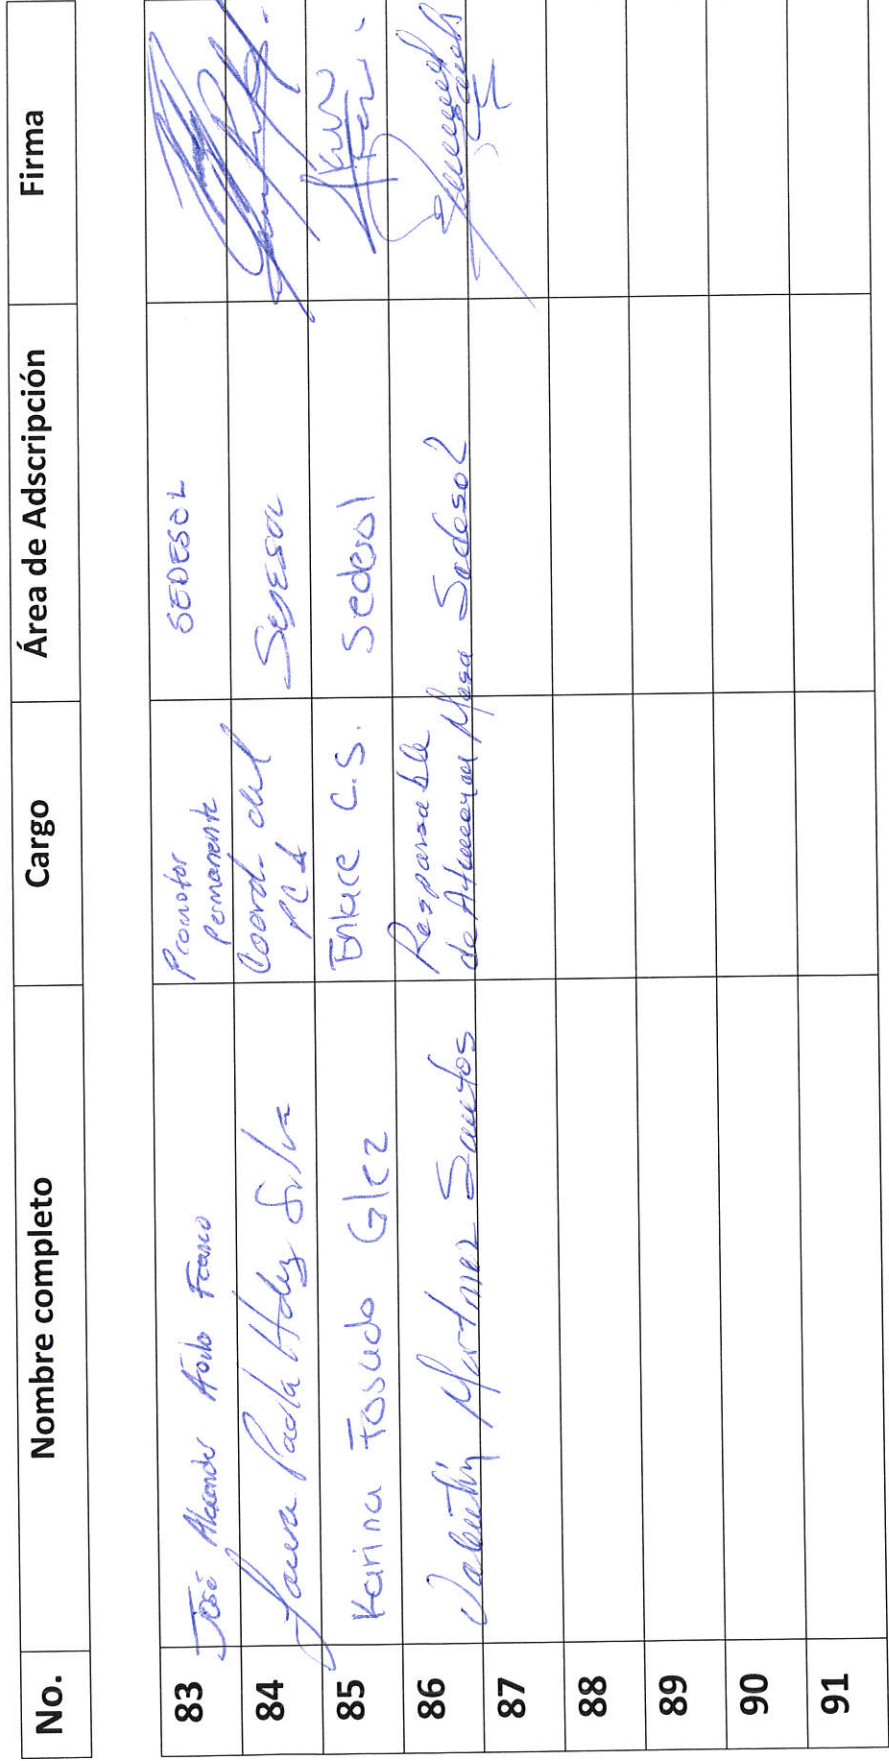 No. Nombre completo Cargo Área de Adscripción Firma
83 José Alexander Franco Promotor Permanente SEDESOL
84 Laura Paola Hdez Silva Coord. del SEDESOL
85 Karina Tosucdo Glez Enlace C.S. Sedesol
86 Valentín Martinez Santos Responsable de Atencion Mesa Sedesol
87
88
89
90
91